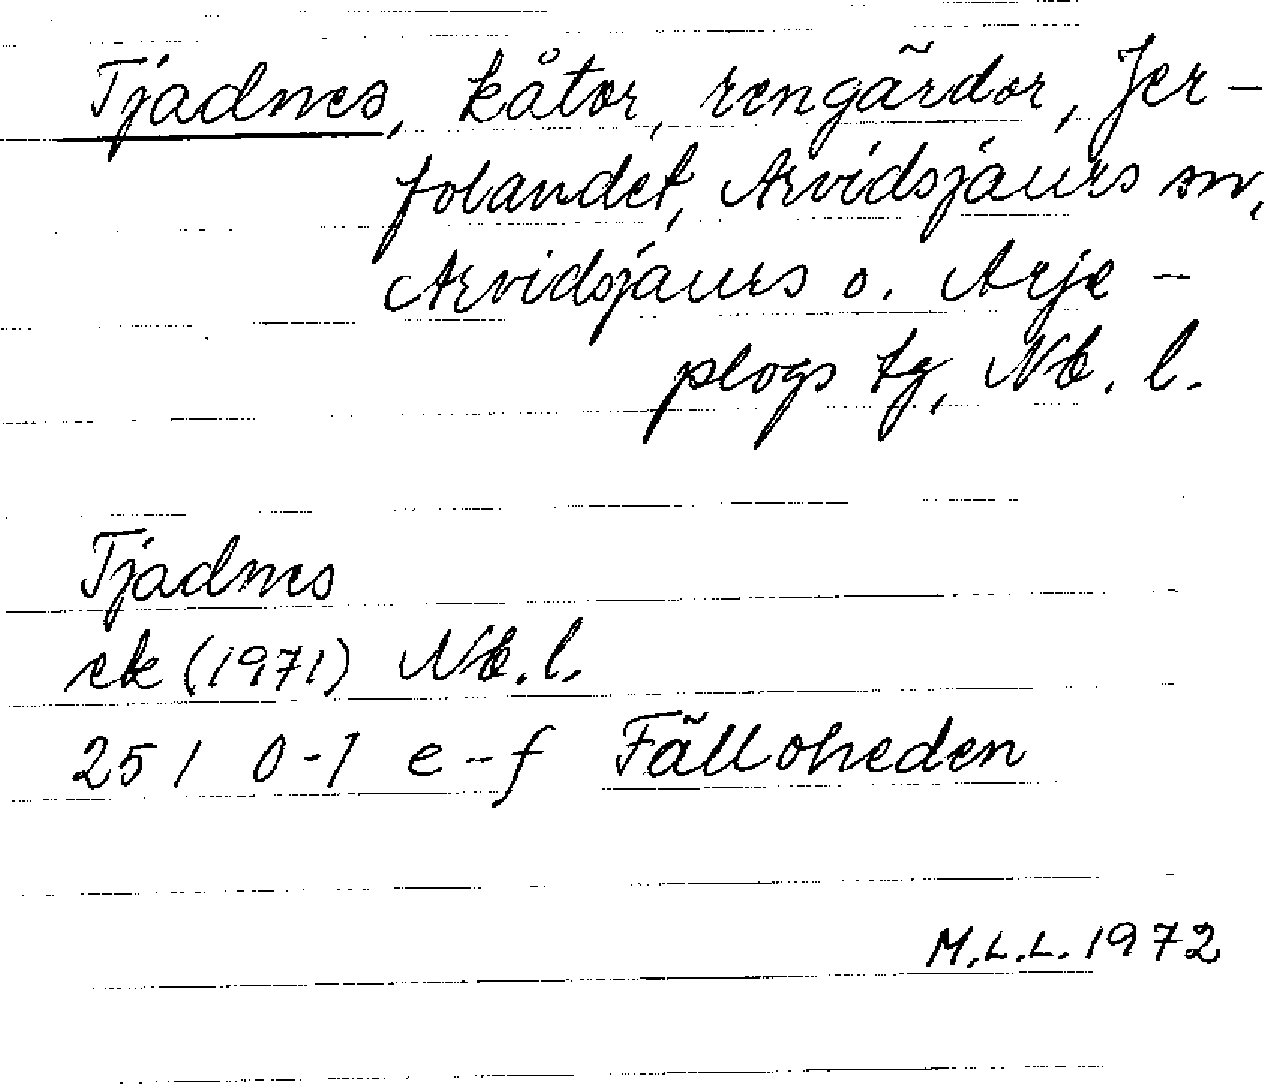 Tjadnes, kåtor, rengärdor, Jer-
folandet, Arvidsjaurs sn,
Arvidsjaurs o. Arje-
plogs tg, Nb. l.
Tjadnes
ek (1971) Nb. l.
25 I 0-1 e-f Fälloheden
M.L.L. 1972